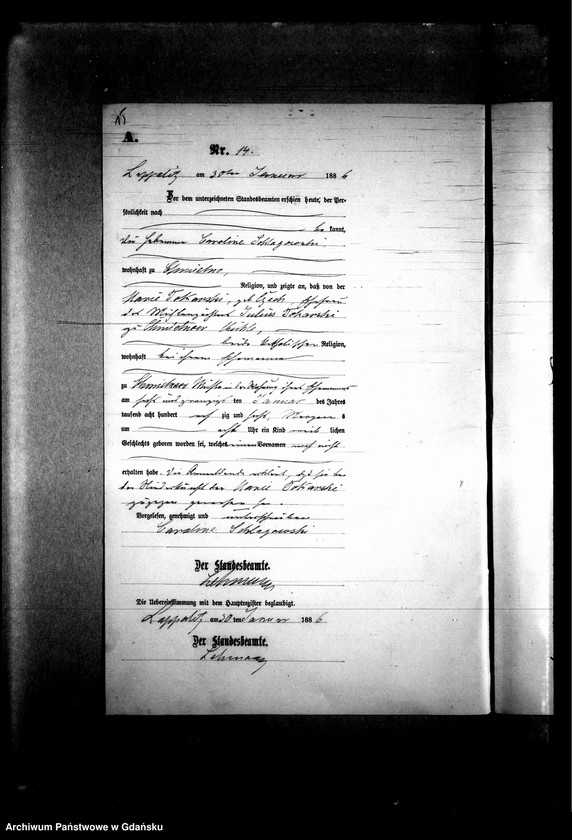 A.
Nr. 14.
am 30ten Januar 1886
Vor dem unterzeichneten Standesbeamten erschien heute, der Per-
sönlichkeit nach
kannt,
die Hebamme Caroline Schlagowski
wohnhaft zu Chmielno,
Religion, und zeigte an, daß von der
Marie Tokarski, geb. Ehefrau
des Mühlenpächters Julius Tokarski
zu Mühle,
beide katholischer Religion,
wohnhaft bei ihrem Ehemanne
zu Mühle in der Wohnung ihres Ehemannes
am sechs und zwanzigsten Januar des Jahres
tausend acht hundert acht zig und sechs, Morgens
um acht Uhr ein Kind weib lichen
Geschlechts geboren worden sei, welches einen Vornamen noch nicht
erhalten habe. Die Anmeldende erklärt, daß sie bei
der Niederkunft der Marie Tokarski
zugegen gewesen sei.
Vorgelesen, genehmigt und unterschrieben
Caroline Schlagowski
Der Standesbeamte.
Die Uebereinstimmung mit dem Hauptregister beglaubigt.
am 30 ten Januar 1886
Der Standesbeamte.
Archiwum Państwowe w Gdańsku